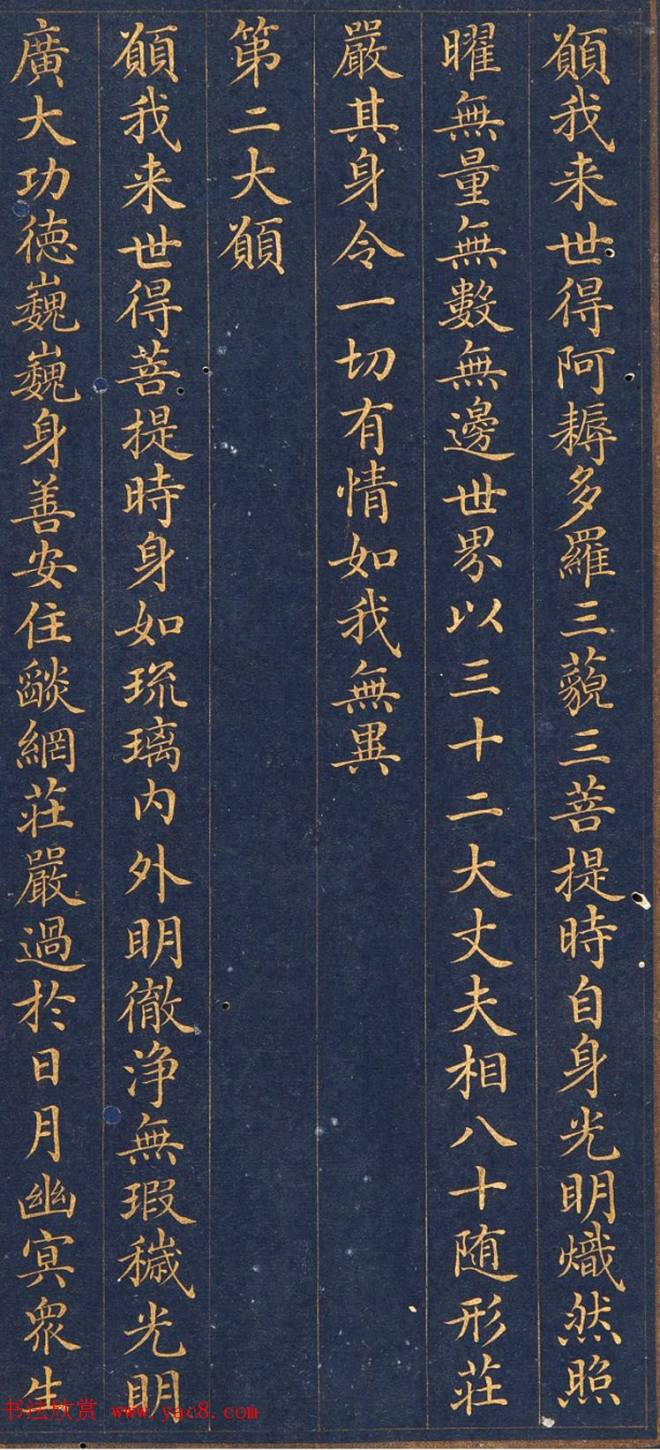 願我来世得阿耨多羅三藐三菩提時自身光明熾然照
曜無量無數無邊世界以三十二大丈夫相八十随形莊
嚴其身令一切有情如我無異
第二大願
願我来世得菩提時身如琉璃内外明徹浄無瑕穢光明
廣大功德巍巍身善安住燄網莊嚴過於日月幽冥衆生
书法欣赏 www.yac8.com